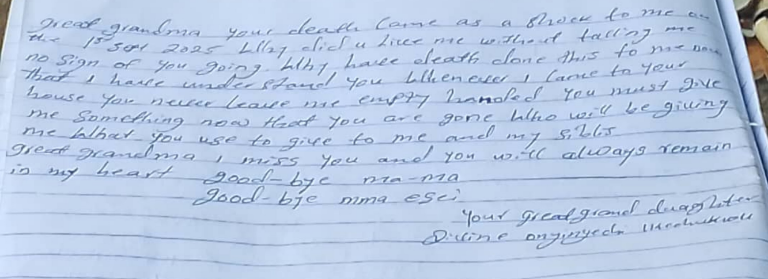 great grandma your death came as a shock to me on
the 1st Sept 2025 Why did u live me without talling me
no sign of you going. Why have death done this to me now
that I have understand you Whenever I came to your
house you never leave me empty handed you must give
me Something now that you are gone Who will be giving
me What you use to give to me and my siblis
great grandma I miss you and you will always remain
in my heart good-bye ma-ma
good-bye mma esei
your great grand duaghter
Divine onyinyech